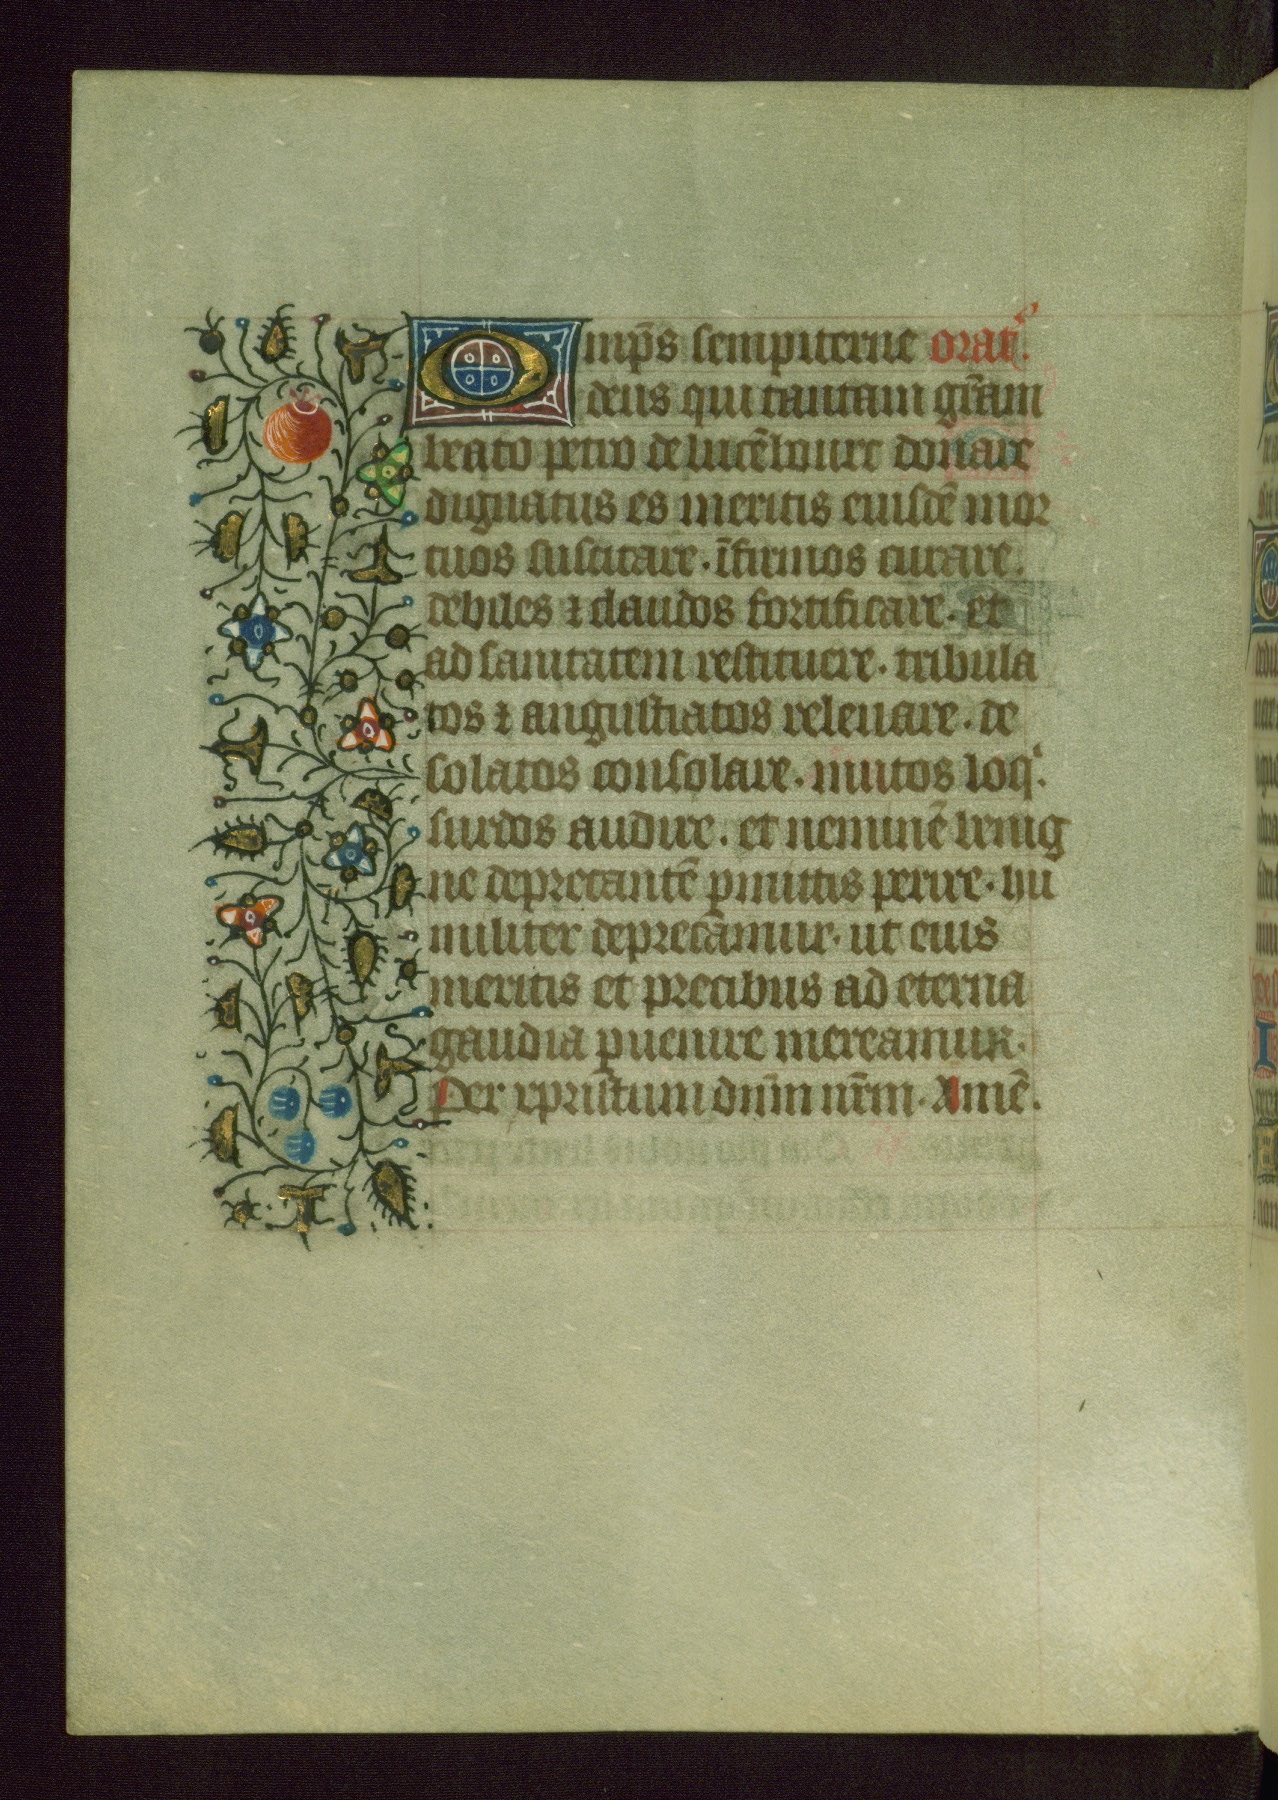 Omp̄s sempiterne orat̄.
deus qui tantam gr̄am
beato petro de lucēbourc donare
dignatus es meritis eiusdē mor
tuos suscitare. īfirmos curare.
debiles ⁊ claudos fortificare. et
ad sanitatem restituere. tribula
tos ⁊ angustiatos releuare. de
solatos consolare. mutos loqⁱ.
surdos audire. et neminē benig
ne deprecantē pmittis perire. hu
militer deprecamur. ut eius
meritis et precibus ad eterna
gaudia puenire mereamur.
Per xpristum dn̄m nr̄m. Amē.